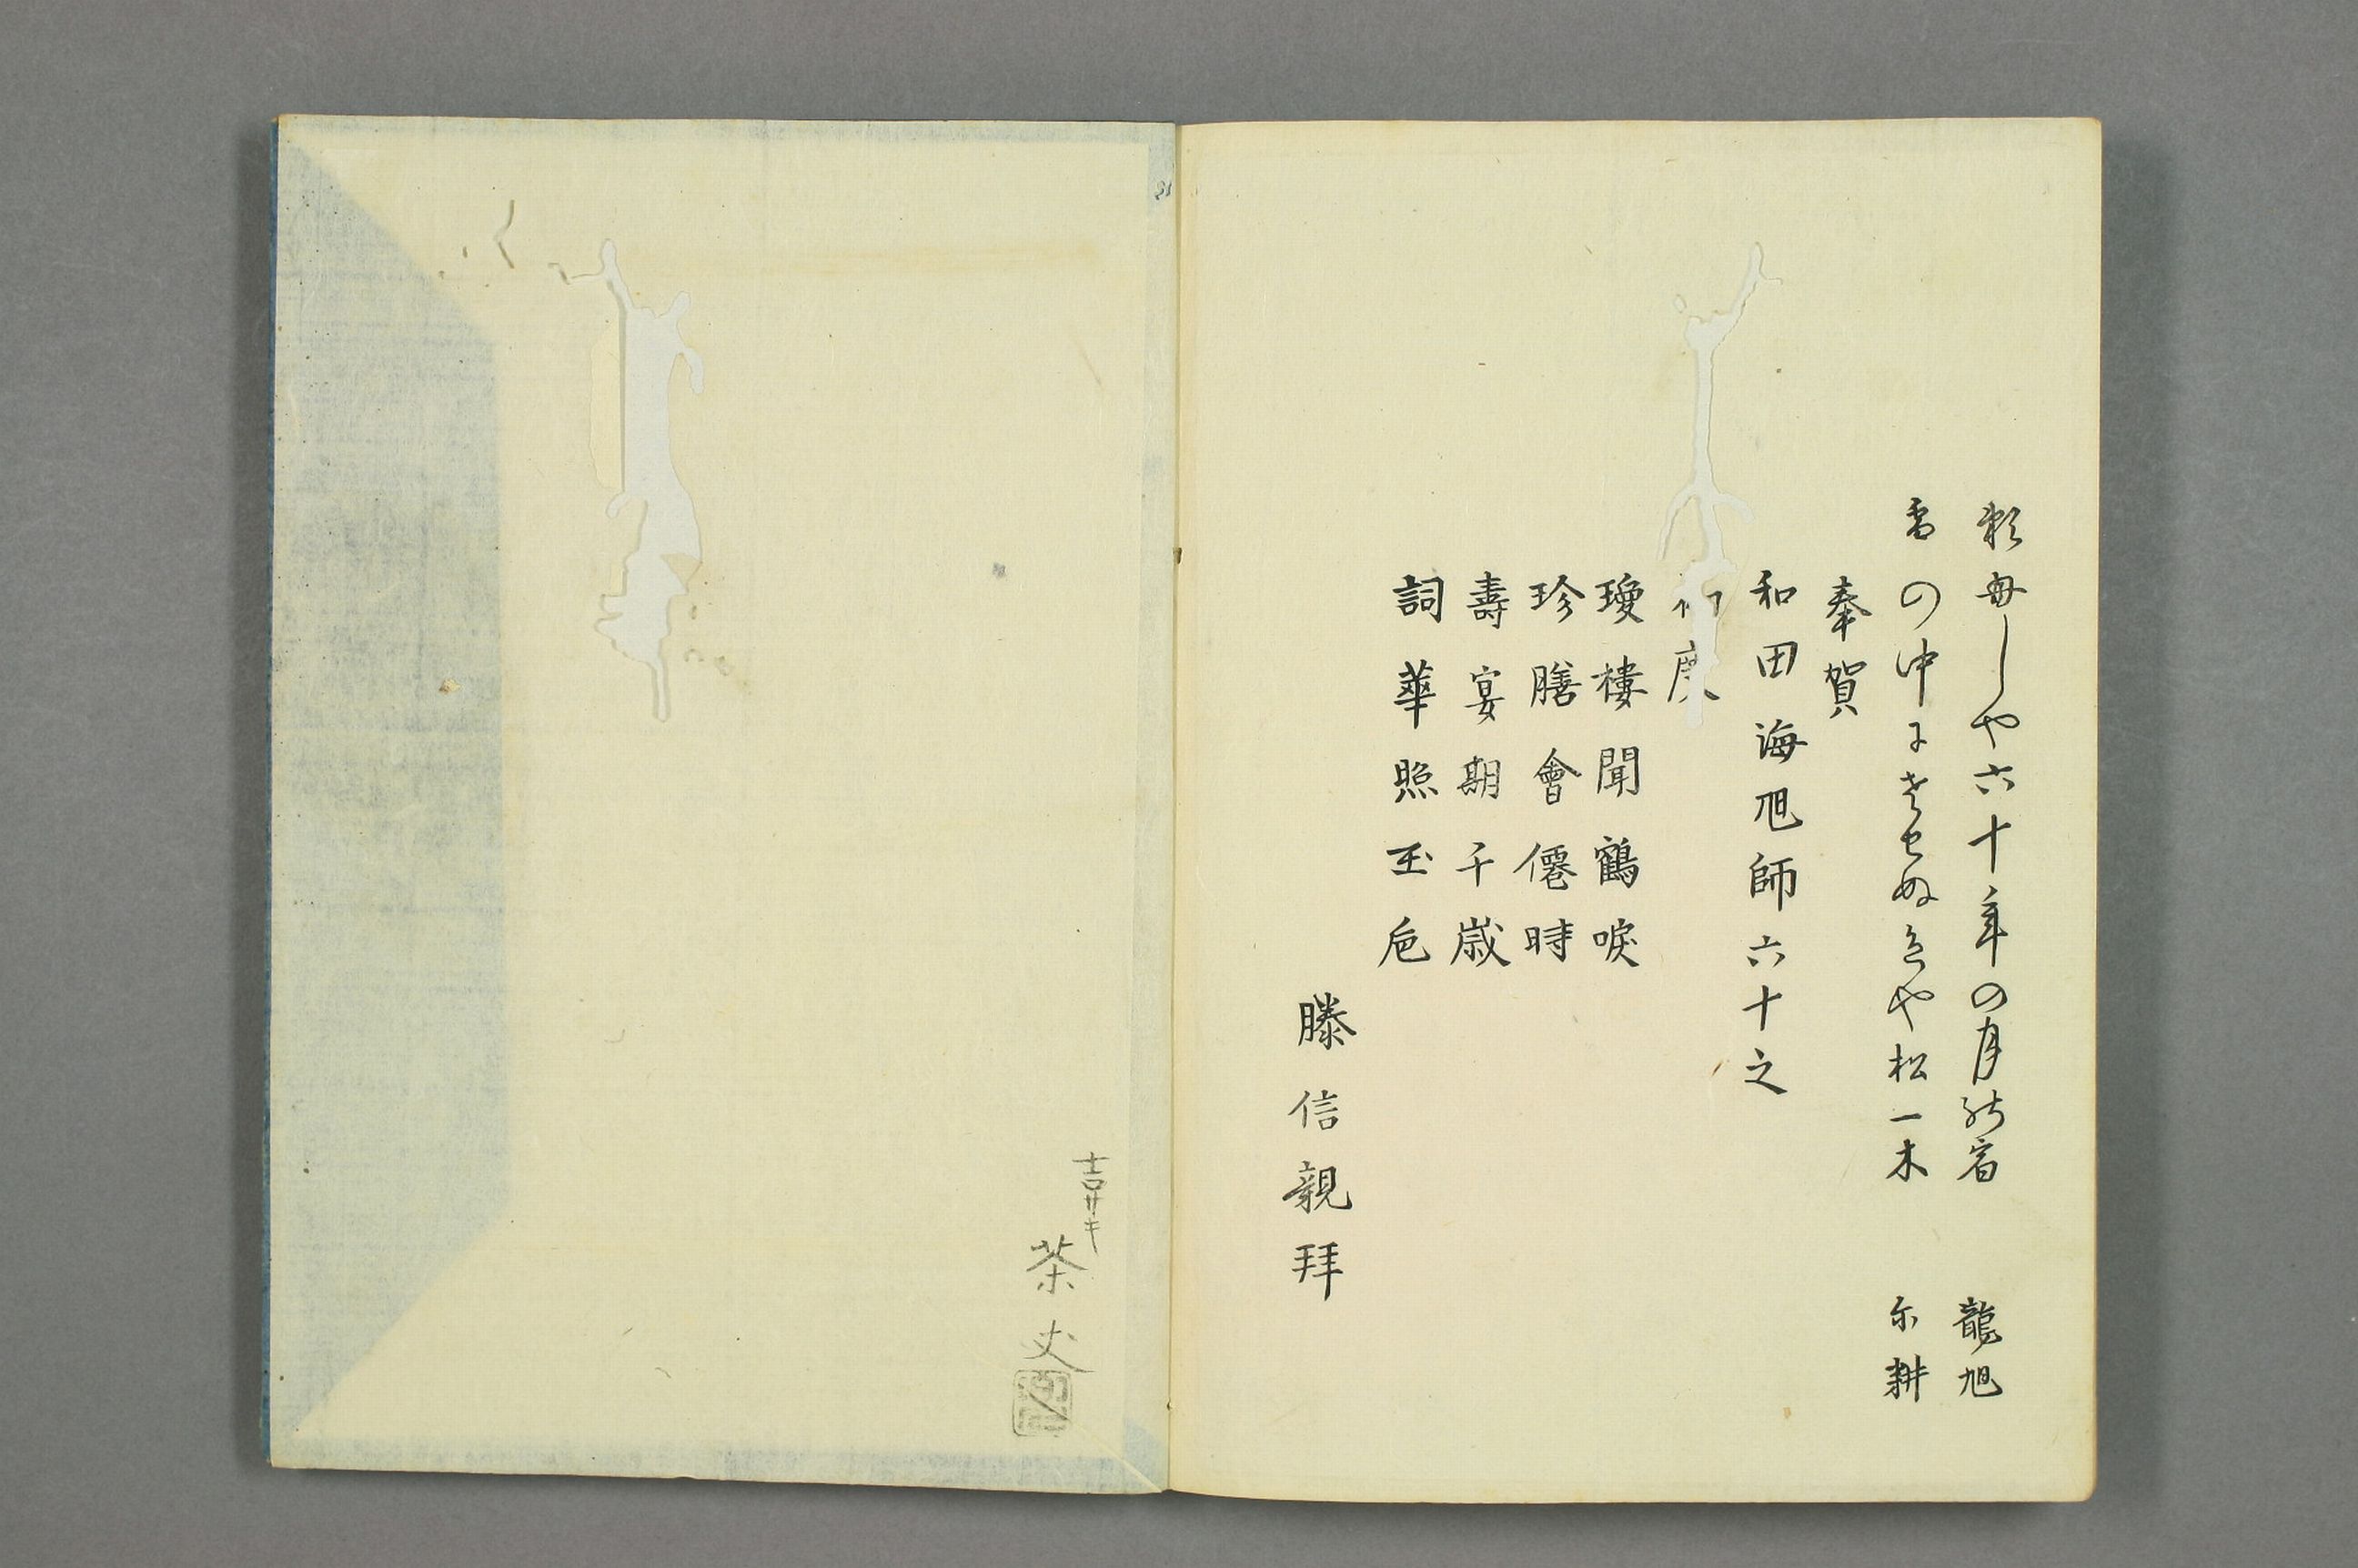 頼母しや六十年の月の宿　龍旭
雪の中にさせぬきや松一木　尓耕
奉賀
和田海旭師六十之
初度
瓊樓聞鶴唳
珍膳會僊時
壽宴期千歳
詞華照玉卮
滕信親拜
茶丈